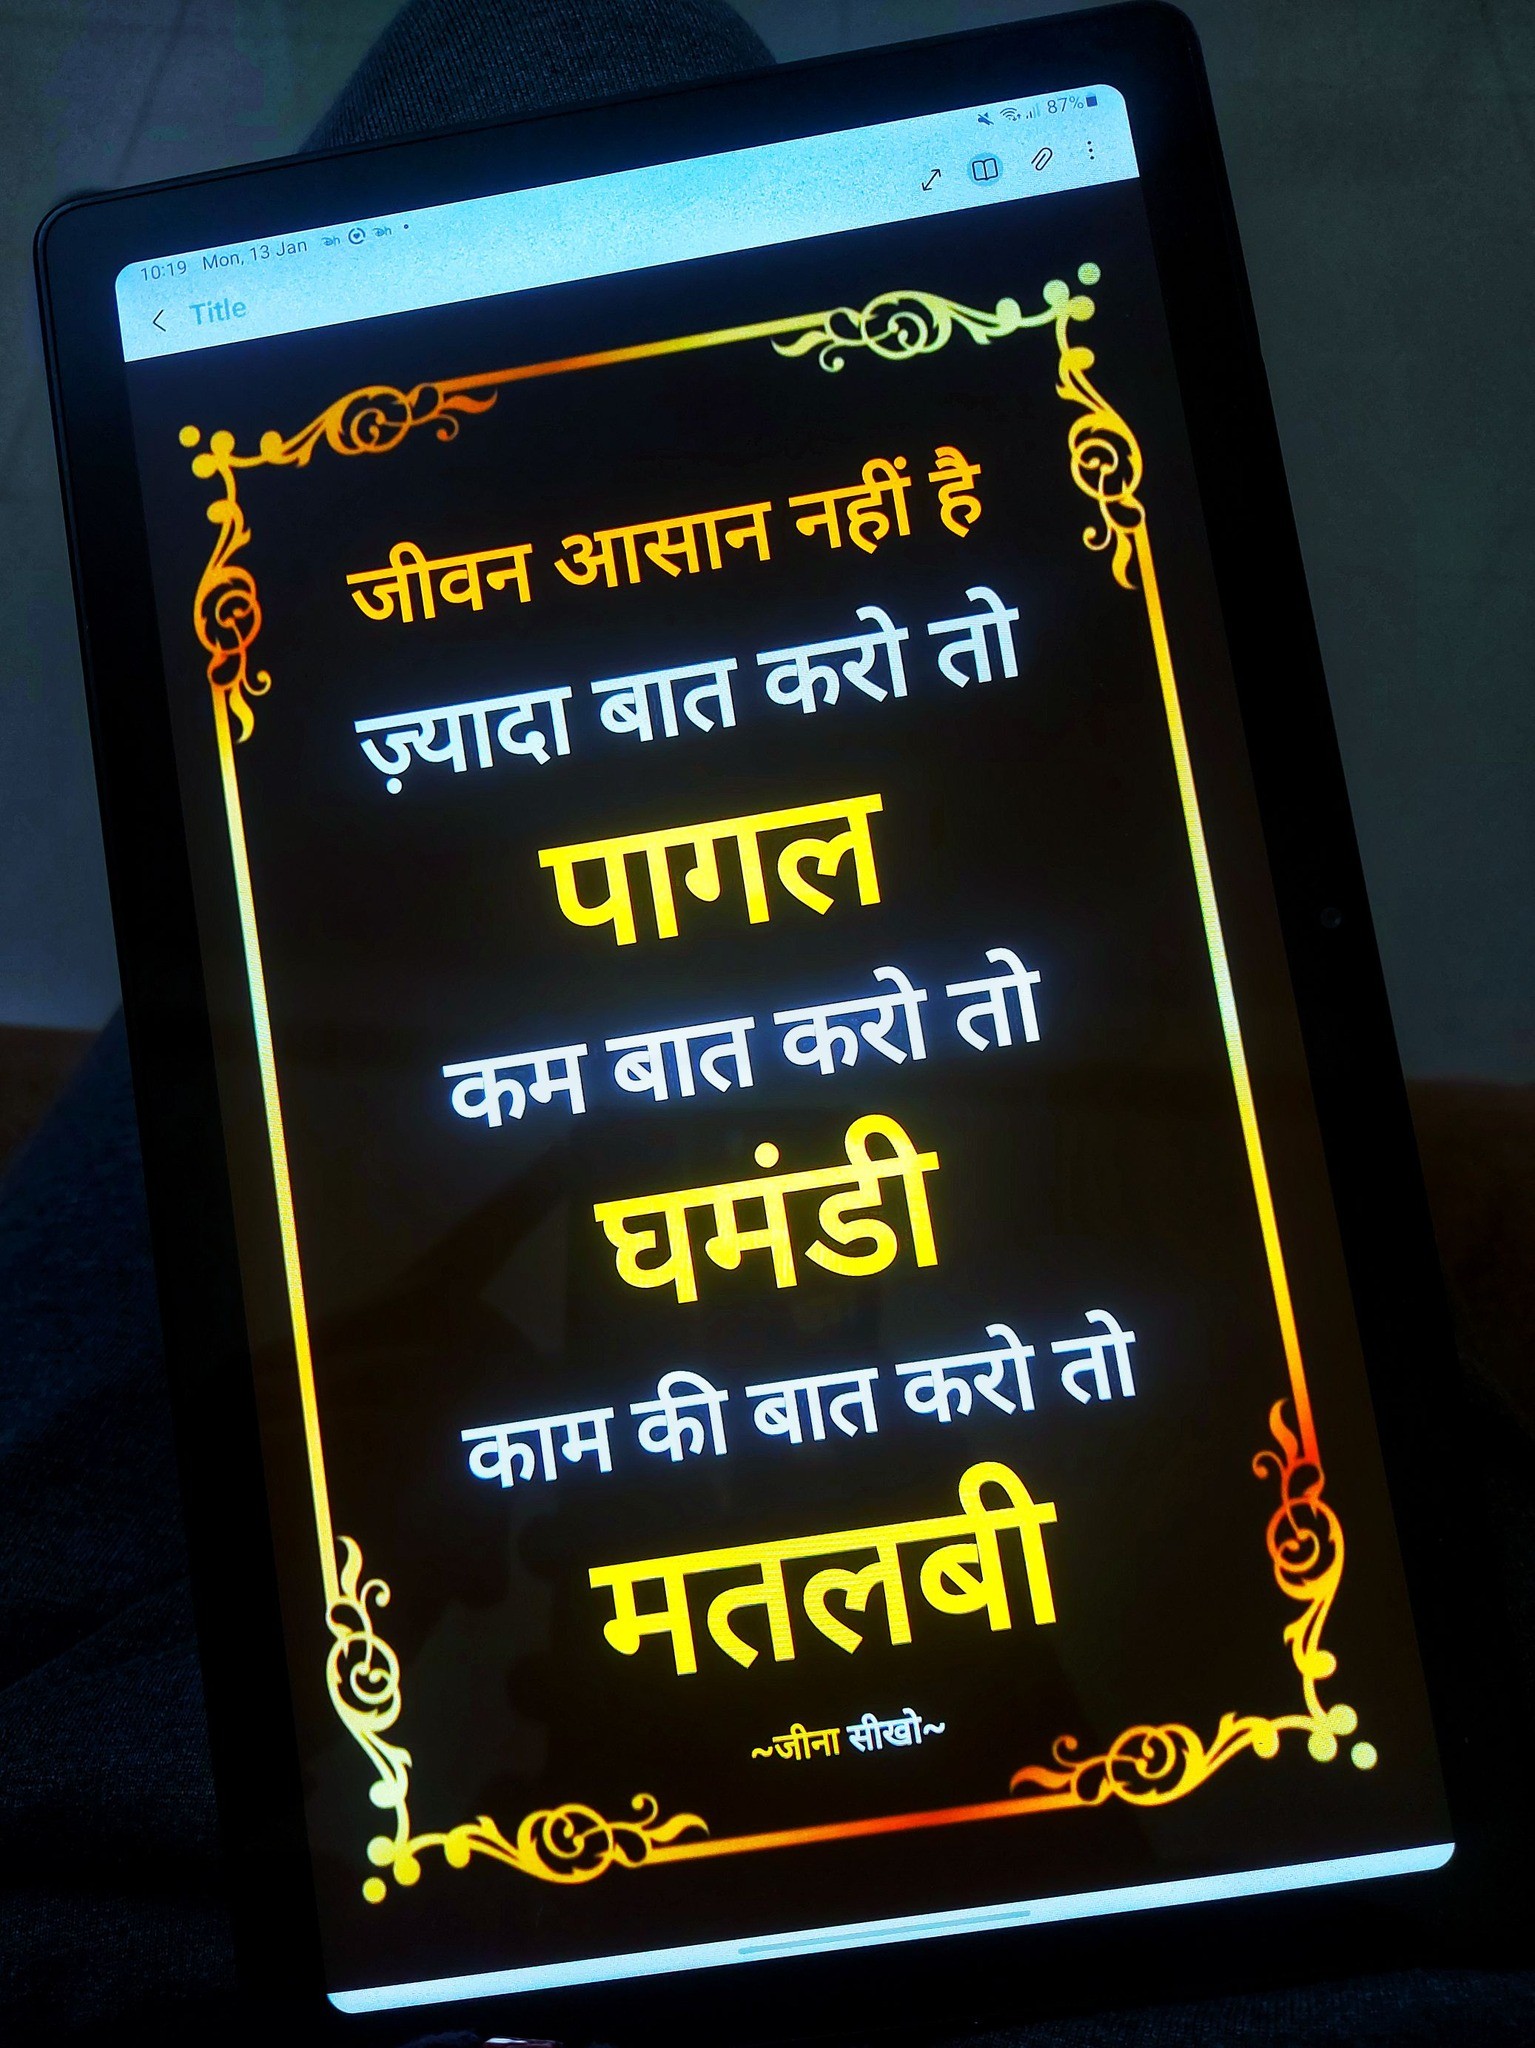 10:19 Mon, 13 Jan
87%
Title
जीवन आसान नहीं है
ज़्यादा बात करो तो
पागल
कम बात करो तो
घमंडी
काम की बात करो तो
मतलबी
~जीना सीखो~